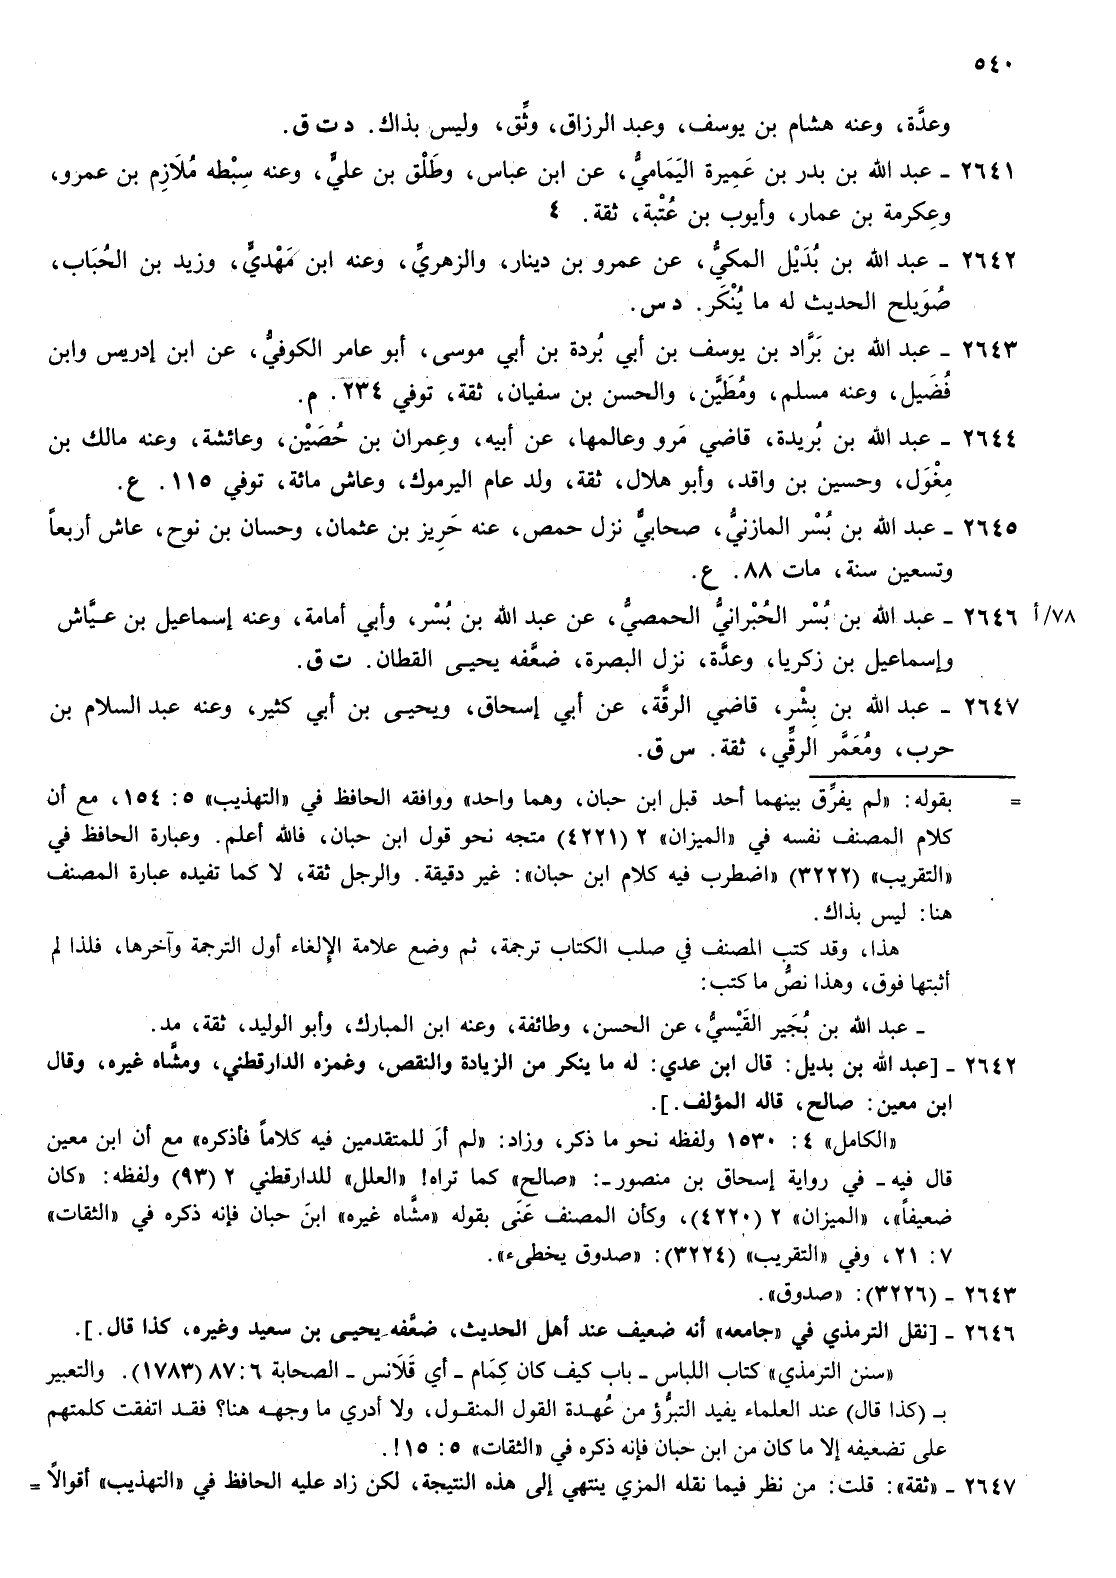 ٥٤٠
وعدَّة، وعنه هشام بن يوسف، وعبد الرزاق، وثِّق، وليس بذاك. د ت ق.
٢٦٤١ ـ عبد الله بن بدر بن عَمِيرة اليَمَاميُّ، عن ابن عباس، وطَلْق بن عليٍّ، وعنه سِبْطه مُلَازِم بن عمرو،
وعِكرمة بن عمار، وأيوب بن عُتْبة، ثقة. ٤
٢٦٤٢ ـ عبد الله بن بُدَيْل المكيُّ، عن عمرو بن دينار، والزهريِّ، وعنه ابن مَهْديٍّ، وزيد بن الحُبَاب،
صُوَيلح الحديث له ما يُنْكَر. د س.
٢٦٤٣ ـ عبد الله بن بَرَّاد بن يوسف بن أبي بُردة بن أبي موسى، أبو عامر الكوفيُّ، عن ابن إدريس وابن
فُضَيل، وعنه مسلم، ومُطَيَّن، والحسن بن سفيان، ثقة، توفي ٢٣٤. م.
٢٦٤٤ ـ عبد الله بن بُريدة، قاضي مَرو وعالمها، عن أبيه، وعِمران بن حُصَيْن، وعائشة، وعنه مالك بن
مِغْوَل، وحسين بن واقد، وأبو هلال، ثقة، ولد عام اليرموك، وعاش مائة، توفي ١١٥. ع.
٢٦٤٥ ـ عبد الله بن بُسْر المازنيُّ، صحابيٌّ نزل حمص، عنه حَرِيز بن عثمان، وحسان بن نوح، عاش أربعاً
وتسعين سنة، مات ٨٨. ع.
٧٨/أ ٢٦٤٦ ـ عبد الله بن بُسْر الحُبْرانيُّ الحمصيُّ، عن عبد الله بن بُسْر، وأبي أمامة، وعنه إسماعيل بن عيَّاش
وإسماعيل بن زكريا، وعدَّة، نزل البصرة، ضعَّفه يحيى القطان. ت ق.
٢٦٤٧ ـ عبد الله بن بِشْر، قاضي الرقَّة، عن أبي إسحاق، ويحيى بن أبي كثير، وعنه عبد السلام بن
حرب، ومُعَمَّر الرقِّي، ثقة. س ق.
= بقوله: «لم يفرِّق بينهما أحد قبل ابن حبان، وهما واحد» ووافقه الحافظ في «التهذيب» ٥: ١٥٤، مع أن
كلام المصنف نفسه في «الميزان» ٢ (٤٢٢١) متجه نحو قول ابن حبان، فالله أعلم. وعبارة الحافظ في
«التقريب» (٣٢٢٢) «اضطرب فيه كلام ابن حبان»: غير دقيقة. والرجل ثقة، لا كما تفيده عبارة المصنف
هنا: ليس بذاك.
هذا، وقد كتب المصنف في صلب الكتاب ترجمة، ثم وضع علامة الإلغاء أول الترجمة وآخرها، فلذا لم
أثبتها فوق، وهذا نصُّ ما كتب:
ـ عبد الله بن بُجَير القَيْسيُّ، عن الحسن، وطائفة، وعنه ابن المبارك، وأبو الوليد، ثقة، مد.
٢٦٤٢ ـ [عبد الله بن بديل: قال ابن عدي: له ما ينكر من الزيادة والنقص، وغمزه الدارقطني، ومشَّاه غيره، وقال
ابن معين: صالح، قاله المؤلف.].
«الكامل» ٤: ١٥٣٠ ولفظه نحو ما ذكر، وزاد: «لم أرَ للمتقدمين فيه كلاماً فأذكره» مع أن ابن معين
قال فيه ـ في رواية إسحاق بن منصور ـ: «صالح» كما تراه! «العلل» للدارقطني ٢ (٩٣) ولفظه: «كان
ضعيفاً»، «الميزان» ٢ (٤٢٢٠)، وكأن المصنف عَنَى بقوله «مشَّاه غيره» ابنَ حبان فإنه ذكره في «الثقات»
٧: ٢١، وفي «التقريب» (٣٢٢٤): «صدوق يخطىء».
٢٦٤٣ ـ (٣٢٢٦): «صدوق».
٢٦٤٦ ـ [نقل الترمذي في «جامعه» أنه ضعيف عند أهل الحديث، ضعَّفه يحيى بن سعيد وغيره، كذا قال.].
«سنن الترمذي» كتاب اللباس ـ باب كيف كان كِمَام ـ أي قَلَانس ـ الصحابة ٦: ٨٧ (١٧٨٣). والتعبير
بـ (كذا قال) عند العلماء يفيد التبرُّؤ من عُهدة القول المنقول، ولا أدري ما وجهه هنا؟ فقد اتفقت كلمتهم
على تضعيفه إلا ما كان من ابن حبان فإنه ذكره في «الثقات» ٥: ١٥!.
٢٦٤٧ ـ «ثقة»: قلت: من نظر فيما نقله المزي ينتهي إلى هذه النتيجة، لكن زاد عليه الحافظ في «التهذيب» أقوالاً =